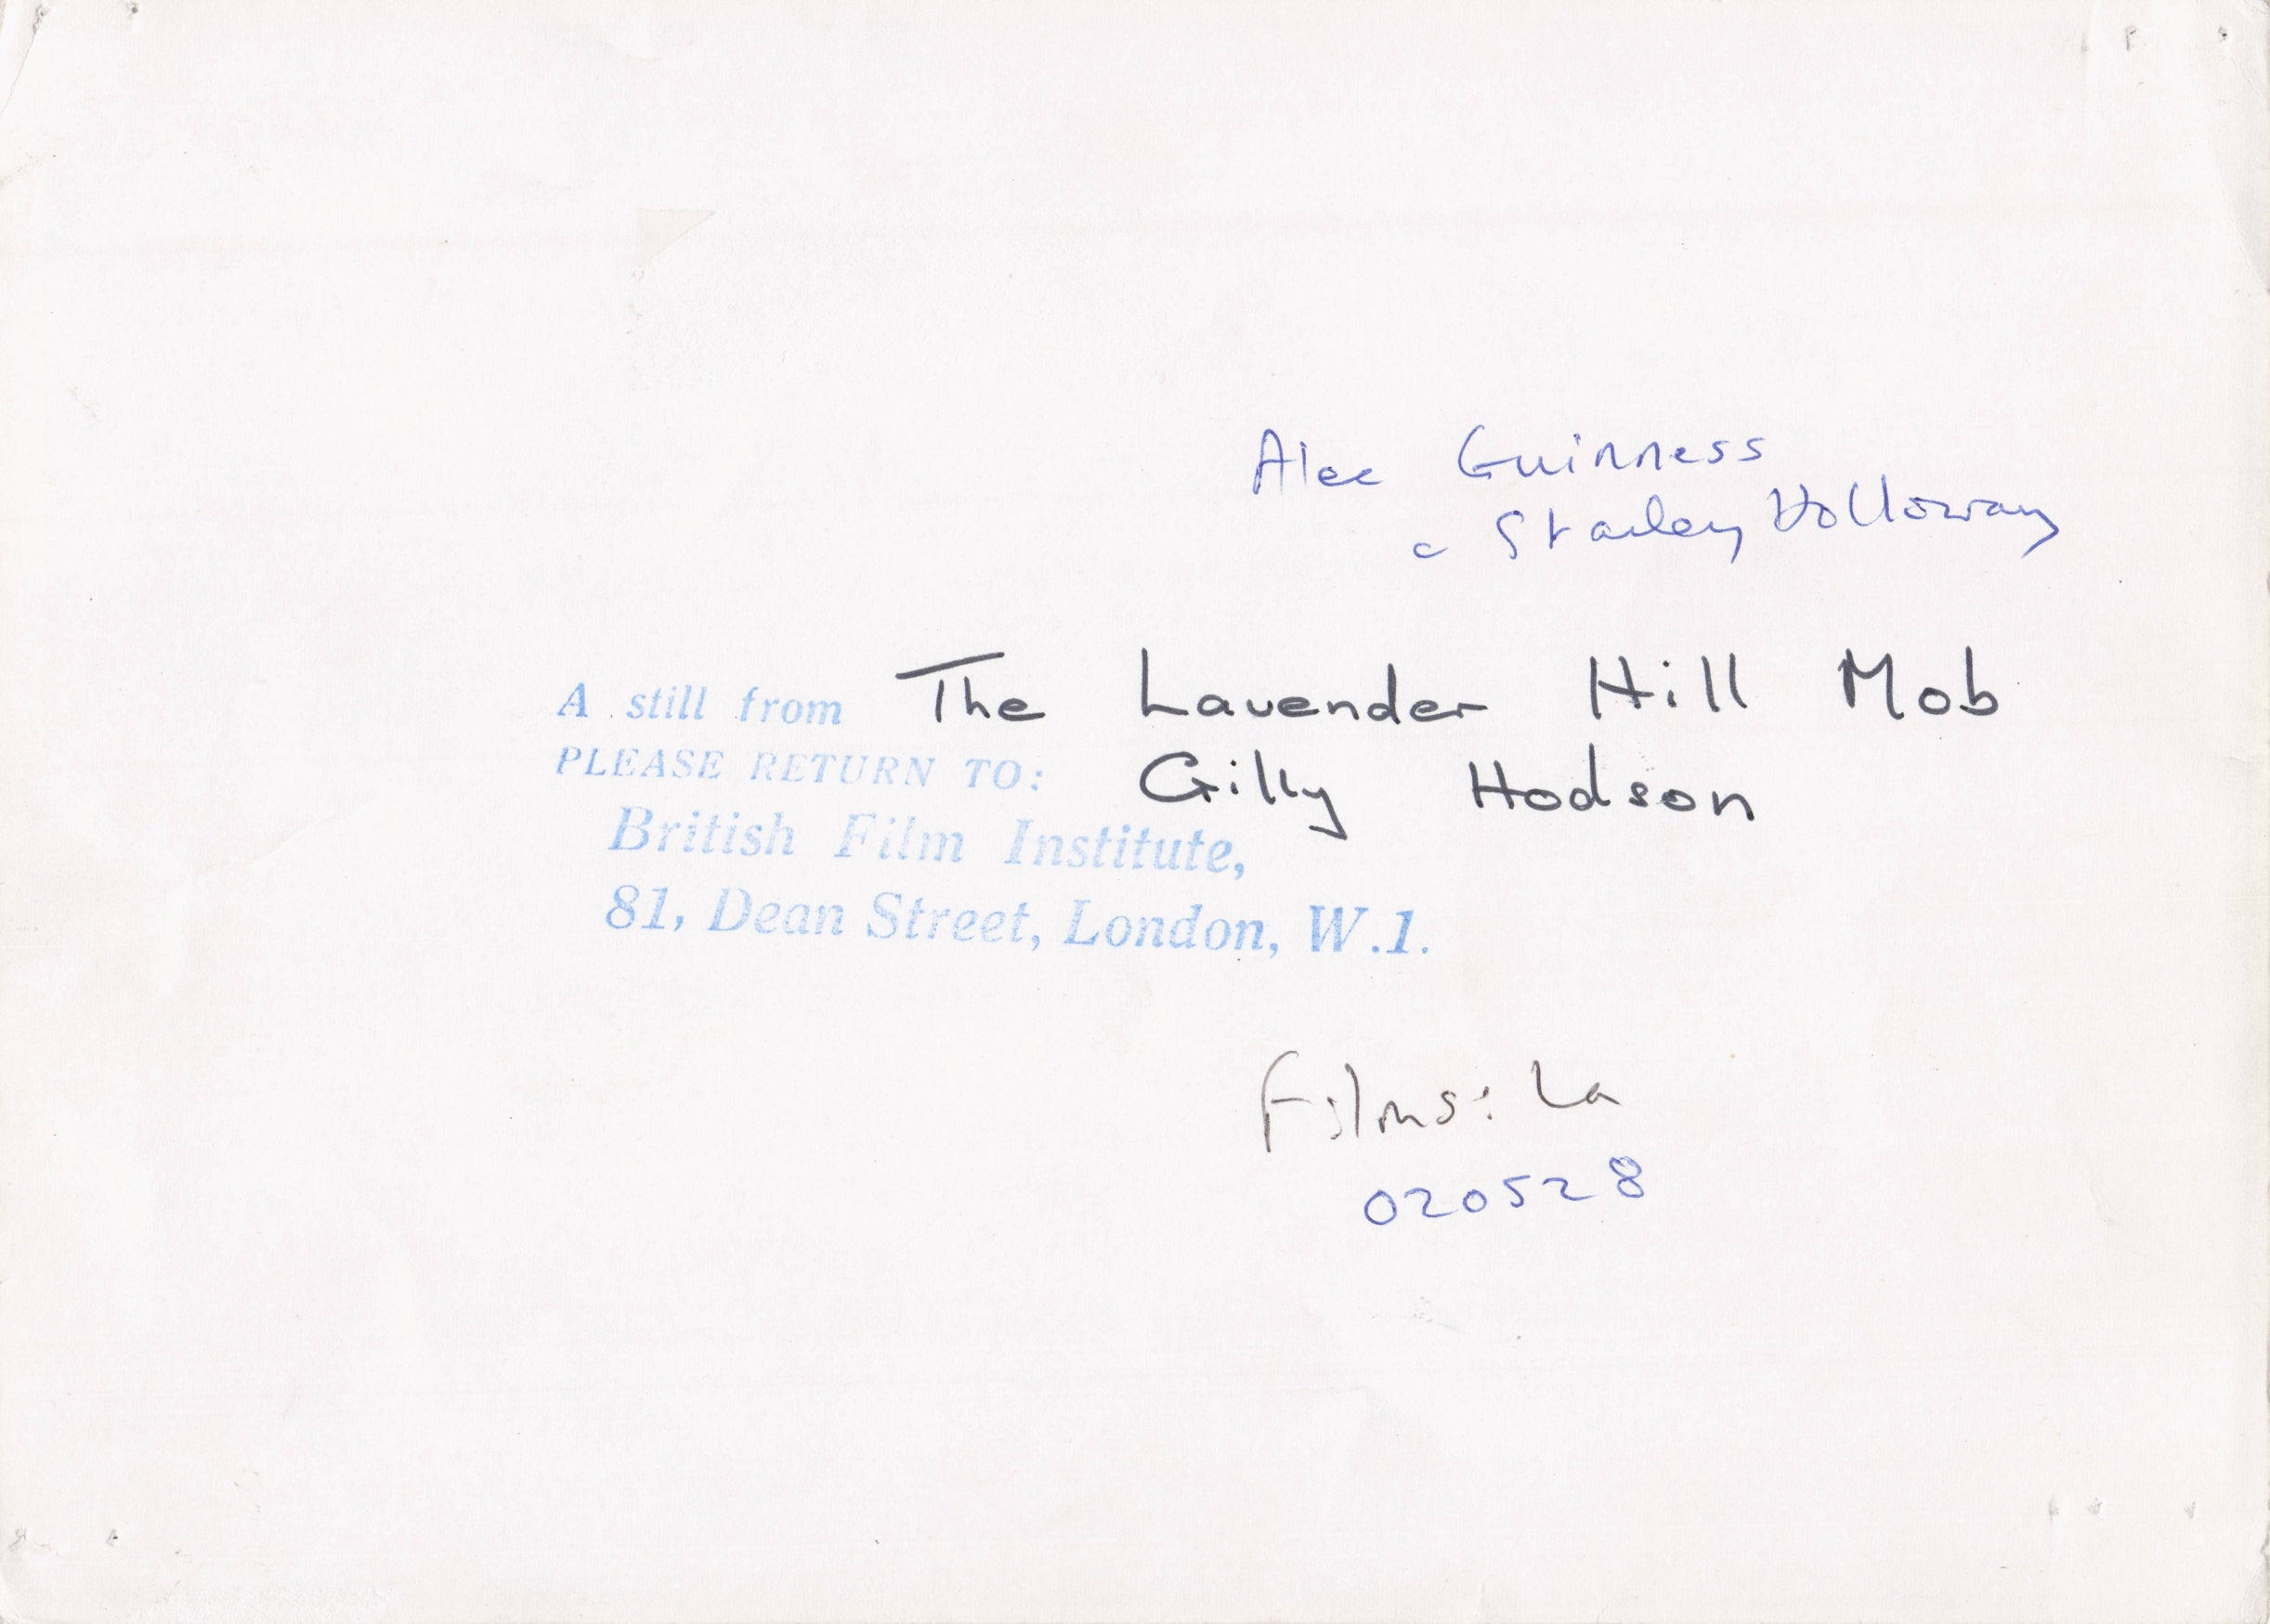 Alec Guinness
& Stanley Holloway
A still from The Lavender Hill Mob
PLEASE RETURN TO: Gilly Hodson
British Film Institute,
81, Dean Street, London, W.1.
Films: La
020528